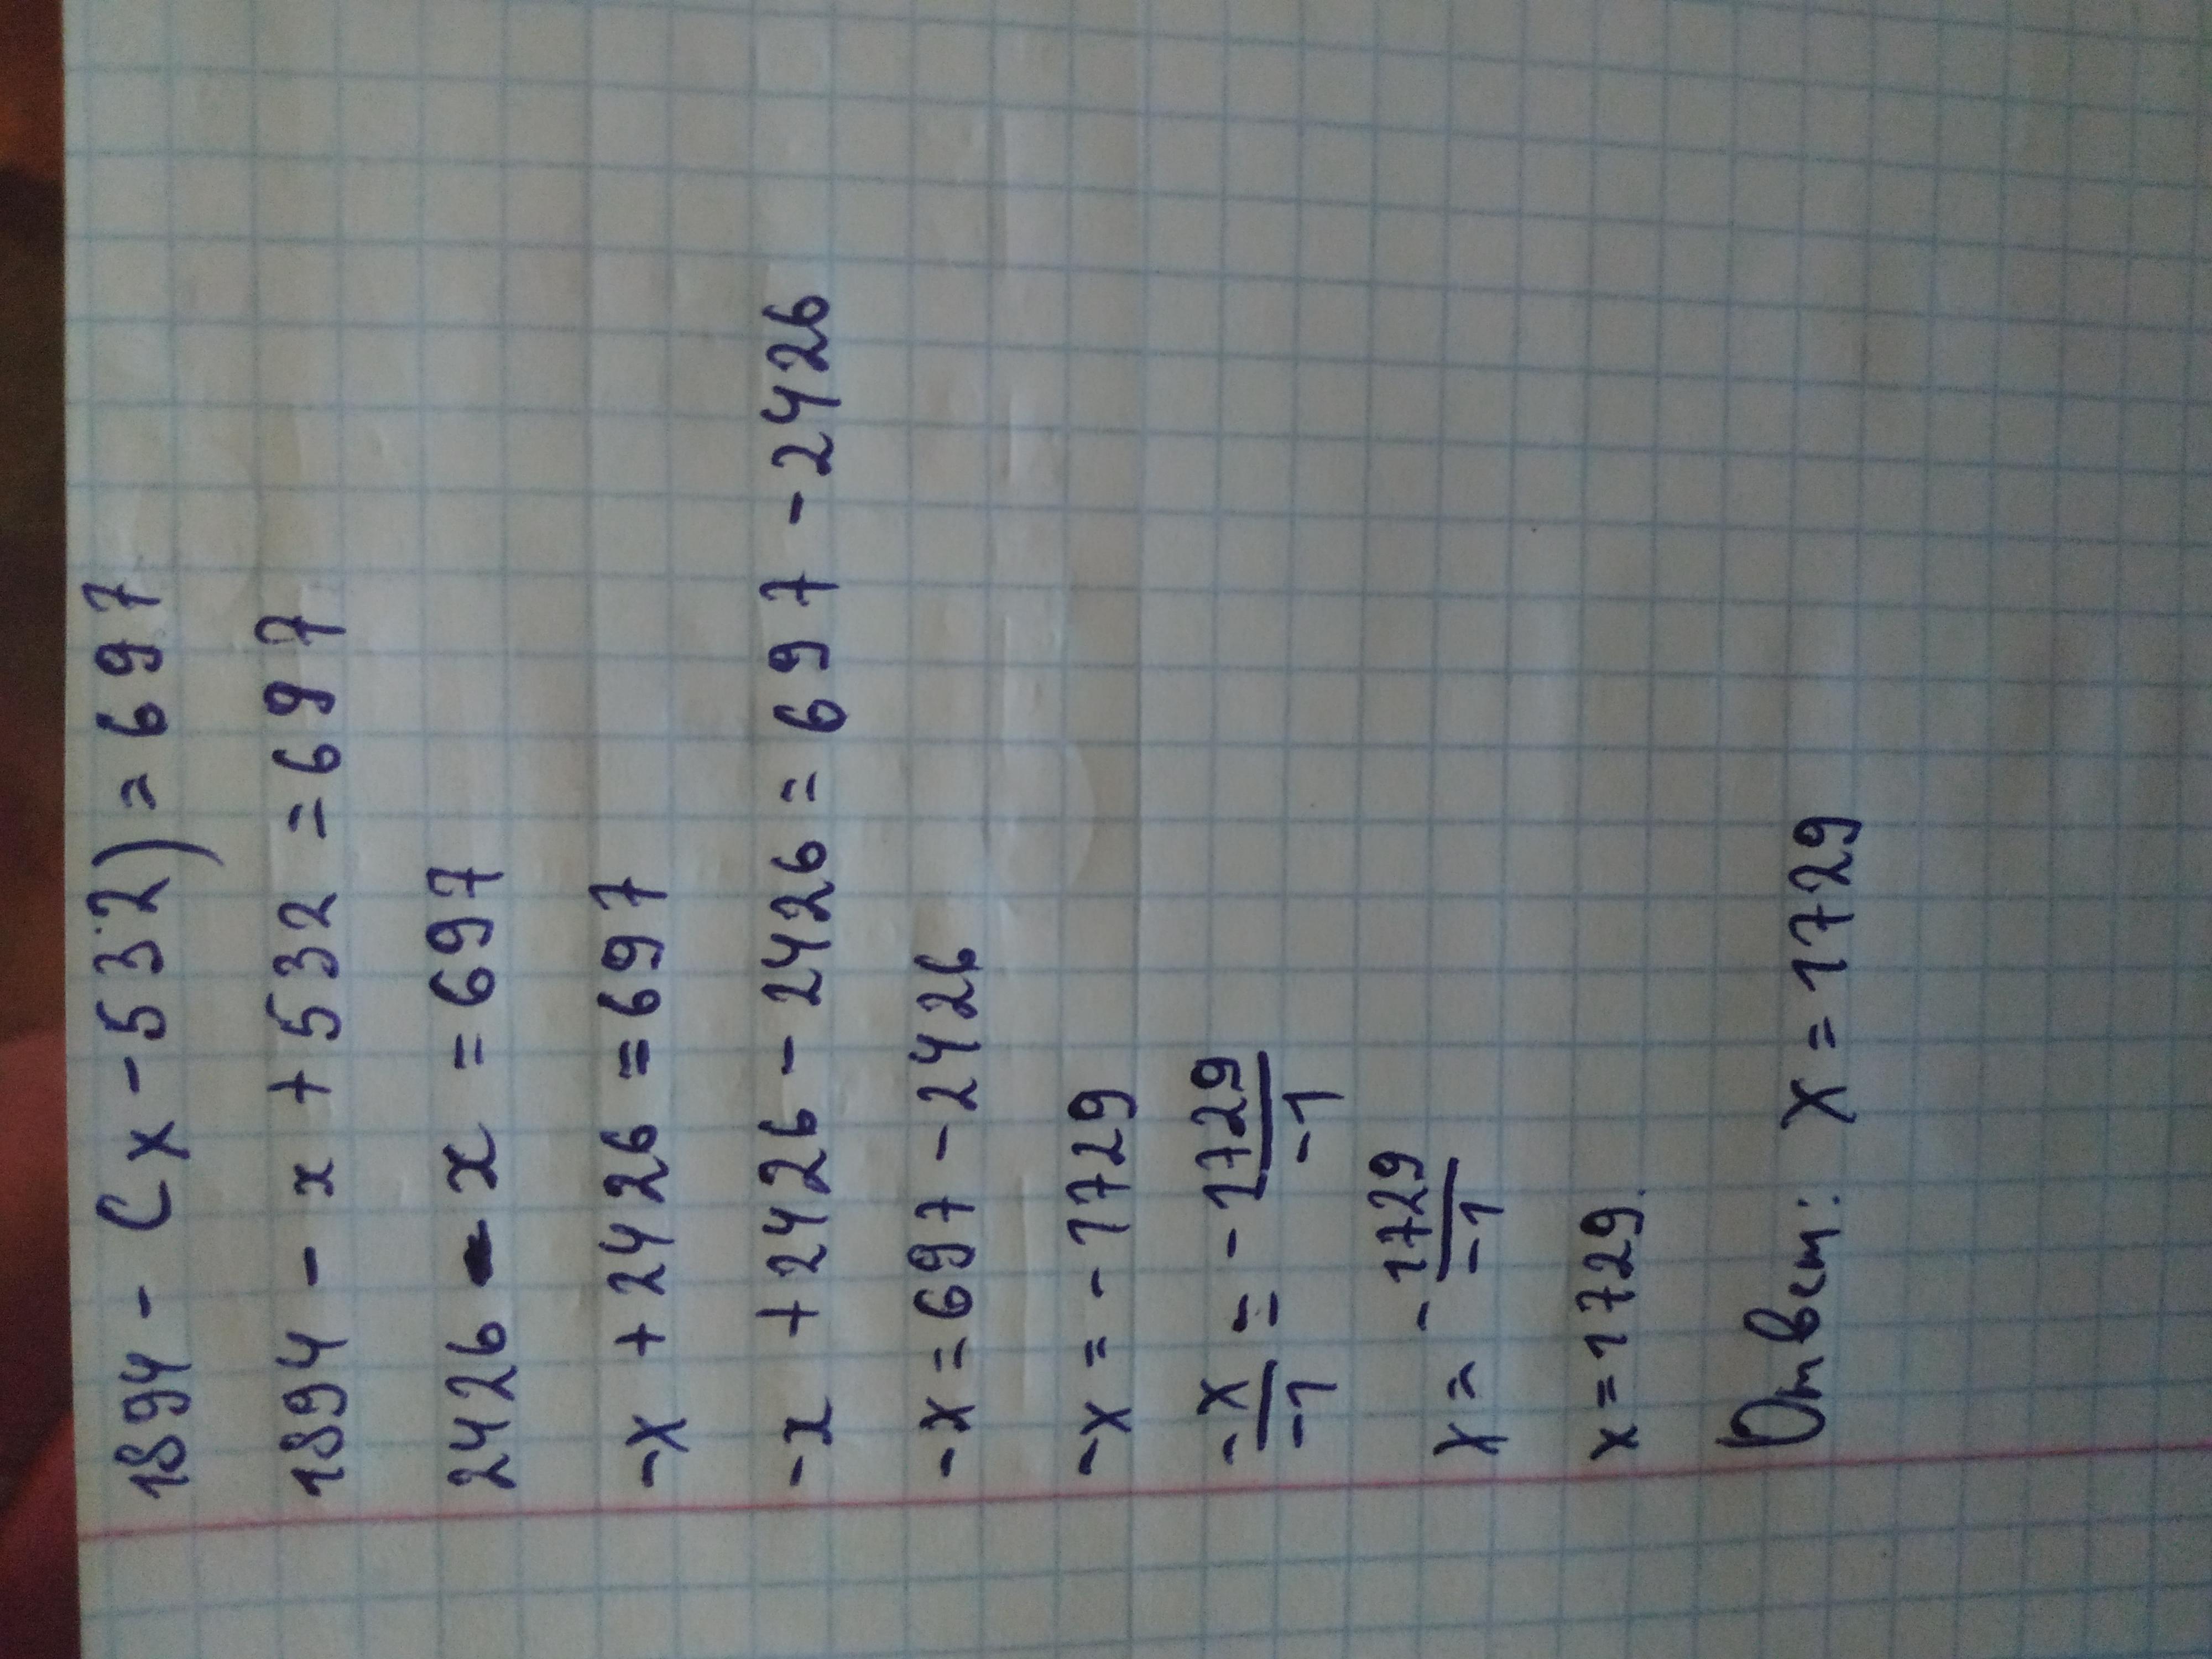 1894 - (x - 532) = 697
1894 - x + 532 = 697
2426 - x = 697
-x + 2426 = 697
-x + 2426 - 2426 = 697 - 2426
-x = 697 - 2426
-x = -1729
-x/-1 = -1729/-1
x = -1729/-1
x = 1729.
Ответ: x = 1729